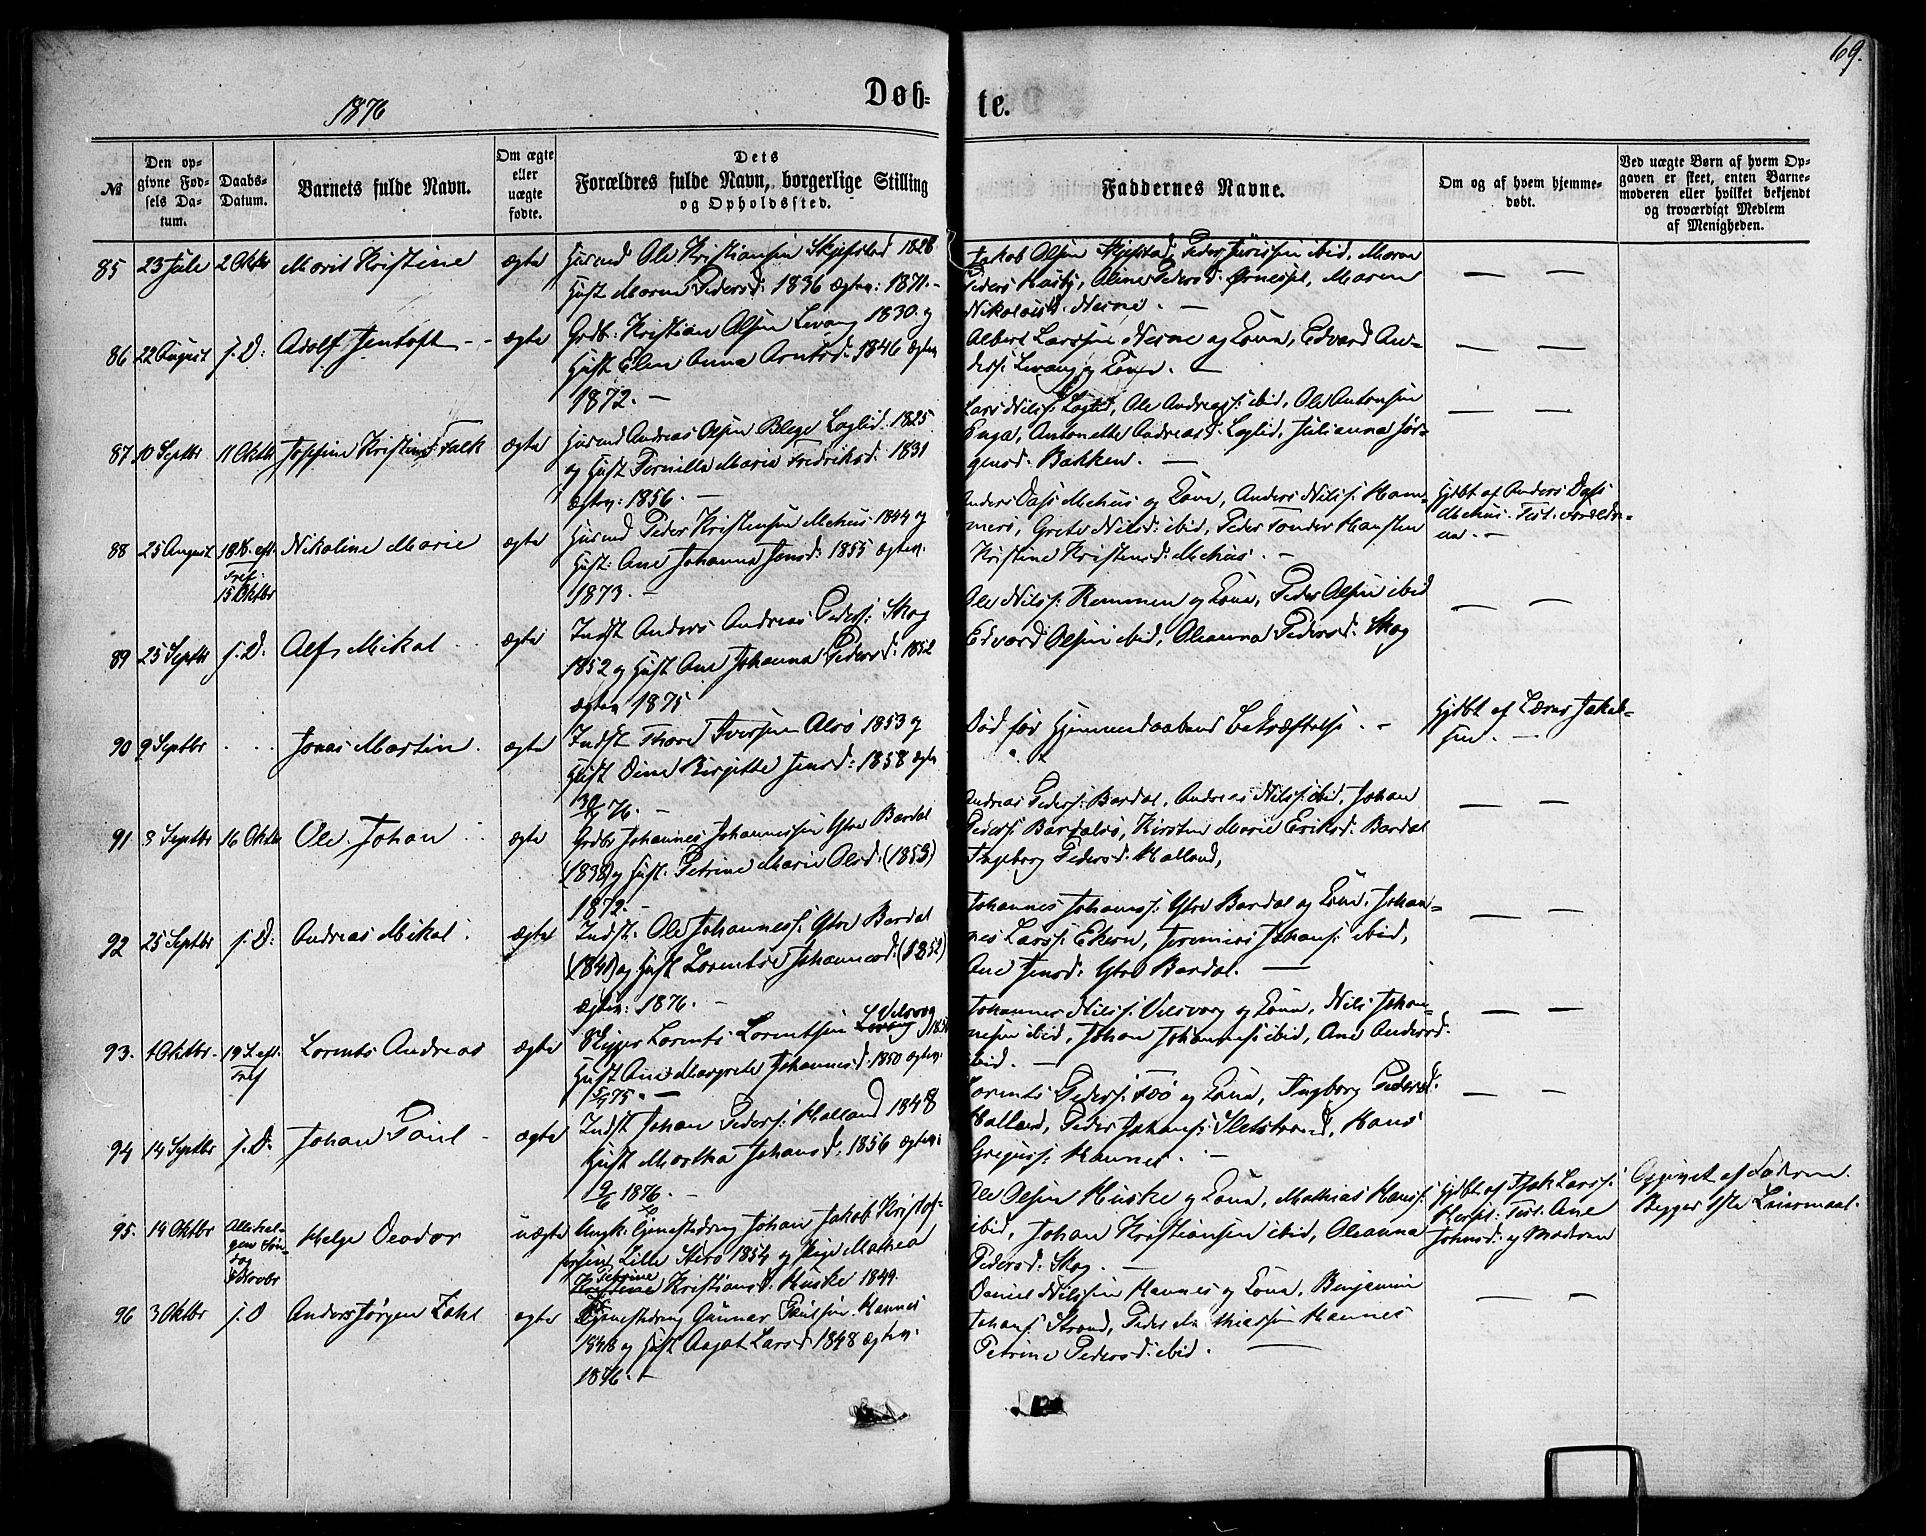 69.
1876
Døb-
te.
№
Den op-
givne Fød-
sels Da-
tum.
Daabs-
Datum.
Barnets fulde Navn.
Om ægte
eller
uægte
fødte.
Dets
Forældres fulde Navn, borgerlige Stilling
og Opholdssted.
Faddernes Navne.
Om og af hvem hjemme-
døbt.
Ved uægte Børn af hvem Op-
gaven er skeet, enten Barne-
moderen eller hvilket bekjendt
og troværdigt Medlem
af Menigheden.
85 23 Juli 2 Oktbr Marit Kristine ægte
Husmd Ole Kristiansen 1828
Hust Maren Pedersd: 1836 Ægtev: 1871.
Jakob Olsen ibid, Maren
Peders Husby, Oline Pedersd: Maren
Nikolaisd: Nesne. —
86 22 August s. D: Adolf Jentoft ægte
Grdb. Kristian Olsen Levang 1830 og
Hust Elen Anna Arntsd: 1846 Ægtev
1872. —
Albert Larssen Nesne og Kone, Edvard An-
derss: Levang og Kone. —
87 10 Septbr 11 Oktbr Josefine Kristine Falk ægte
Husmd Andreas Olsen Blege Loglid 1825
og Hust Pernille Marie Fredriksd: 1831
Ægtev: 1856. —
Lars Nilss: Loglid, Ole Andreass: ibid, Ole Antonsen
Enga, Antonette Andreasd: Loglid, Julianna Jør-
gensd: Bakken. —
88 25 August 18 S. eft.
Tref:
15 Oktbr
Nikoline Marie ægte
Husmd Peder Kristensen Mehus 1844 og
Hust: Ane Johanna Jensd: 1855 Ægtev:
1873. —
Anders Dass Mehus og Kone, Anders Nilss: Ham-
merø, Grete Nilsd: ibid, Peder Tønder Hansten
Kristine Kristensd: Mehus. —
Hjdbt af Anders Dass
Mehus. Test. Forældre-
ne. —
89 25 Septbr s. D: Alf Mikal ægte
Indst Anders Andreas Peders: Skog
1852 og Hust Ane Johanna Pedersd: 1852
Ægtev 1875
Ole Nilss: Remmen og Kone, Peder Olsen ibid
Edvard Olsen ibid, Oleanna Pedersd: Skog
90 9 Septbr Jonas Martin ægte
Indst Thore Iverssen Alsø 1853 og
Hust Dina Birgitte Jensd: 1858 Ægtev
Død før Hjemmedaabens Bekræftelse. —
Hjdbt af Lærer Jakob-
sen. —
91 3 Septbr 16 Oktbr Ole Johan ægte
Grdbr Johannes Johannessen Ytre Bardal
(1838) og Hust: Petrine Marie Olsd: (1853)
1872. —
Andreas Peders: Bardal, Andreas Nilss: ibid, Johan
Peders: Bardalsø, Kirsten Marie Eriksd: Bardal
Ingeborg Pedersd: Halland,
92 25 Septbr s. D: Andreas Mikal ægte
Indst: Ole Johanness: Ytre Bardal
(1841) og Hust Lorentse Johannesd: (1852)
Ægtev: 1876. —
Johannes Johanss: Ytre Bardal og Kone, Johan-
nes Larss: Ekern, Jeremias Johans: ibid,
Ane Jensd: Ytre Bardal. —
93. 1 Oktbr. 19 S. eft.
Tref
Lorents Andreas ægte
Lorents Lorentsen Levang Vilsvog
Hust Ane Margrete Johannesd: 1850 Ægtev:
Johannes Nilss: Vilsvog og Kone, Nils Johan-
nesen ibid, Johan Johanness: ibid, Ane Andersd:
ibid. —
94 14 Septbr s. D: Johan Paul ægte
Indst Johan Peders: Halland 1848
Hust Martha Johansd: 1856 Ægtev:
9/6 1876. —
Lorents Peders: og Kone, Ingeborg Pedersd:
Halland, Peder Johans: Sletstrand, Hans
Greguss: Hannes. —
95. 14 Oktbr Allehel-
gen Søn-
dag
5 Novbr
Helge Deodor uægte
Ungk: Tjenestedreng Johan Jakob Kristof-
fersen, Lille 1854 og Pige Mathea
Petrine Kristiansd: Huske 1849.
Ole Olsen Huske og Kone, Mathias Hanss:
ibid, Johan Kristiansen ibid, Oleanna
Pedersd: Skog. —
Hjdbt af Isak Larss:
Test. Ane
Johnsd: og Moderen
Opgivet af Faderen
96 3 Oktbr s. D Anders Jørgen Zahl ægte
Tjenestedreng Gunnar Paulsen Hannes
1848 og Hust Aagot Larsd: 1848 Ægtev:
1876. —
Daniel Nilssen Hannes og Kone, Benjamin
Johans: Strand, Peder Mathiassen Hannes
Petrine Pedersd: ibid. —